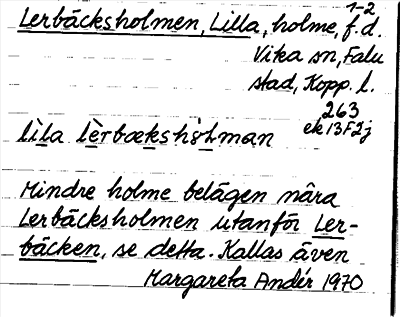 1-2
Lerbäcksholmen, Lilla, holme, f.d.
Vika sn, Falu
stad, Kopp. l.
263
ek 13F2j
lìla lèrbæksh
Mindre holme belägen nära
Lerbäcksholmen utanför Ler-
bäcken, se detta. Kallas även
Margareta Andér 1970